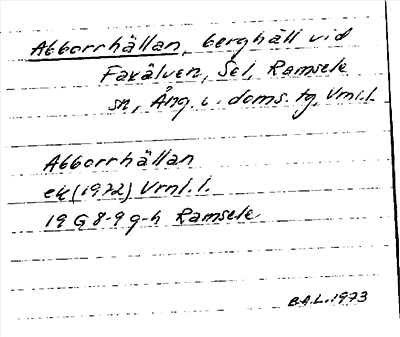 Abborrhällan, berghäll vid
Faxälven, Sel, Ramsele
sn, Ång. v. doms. tg, Vrnl. l.
Abborrhällan
ek (1972) Vrnl. l.
19 G 8-9 g-h Ramsele
B.A.L. 1973